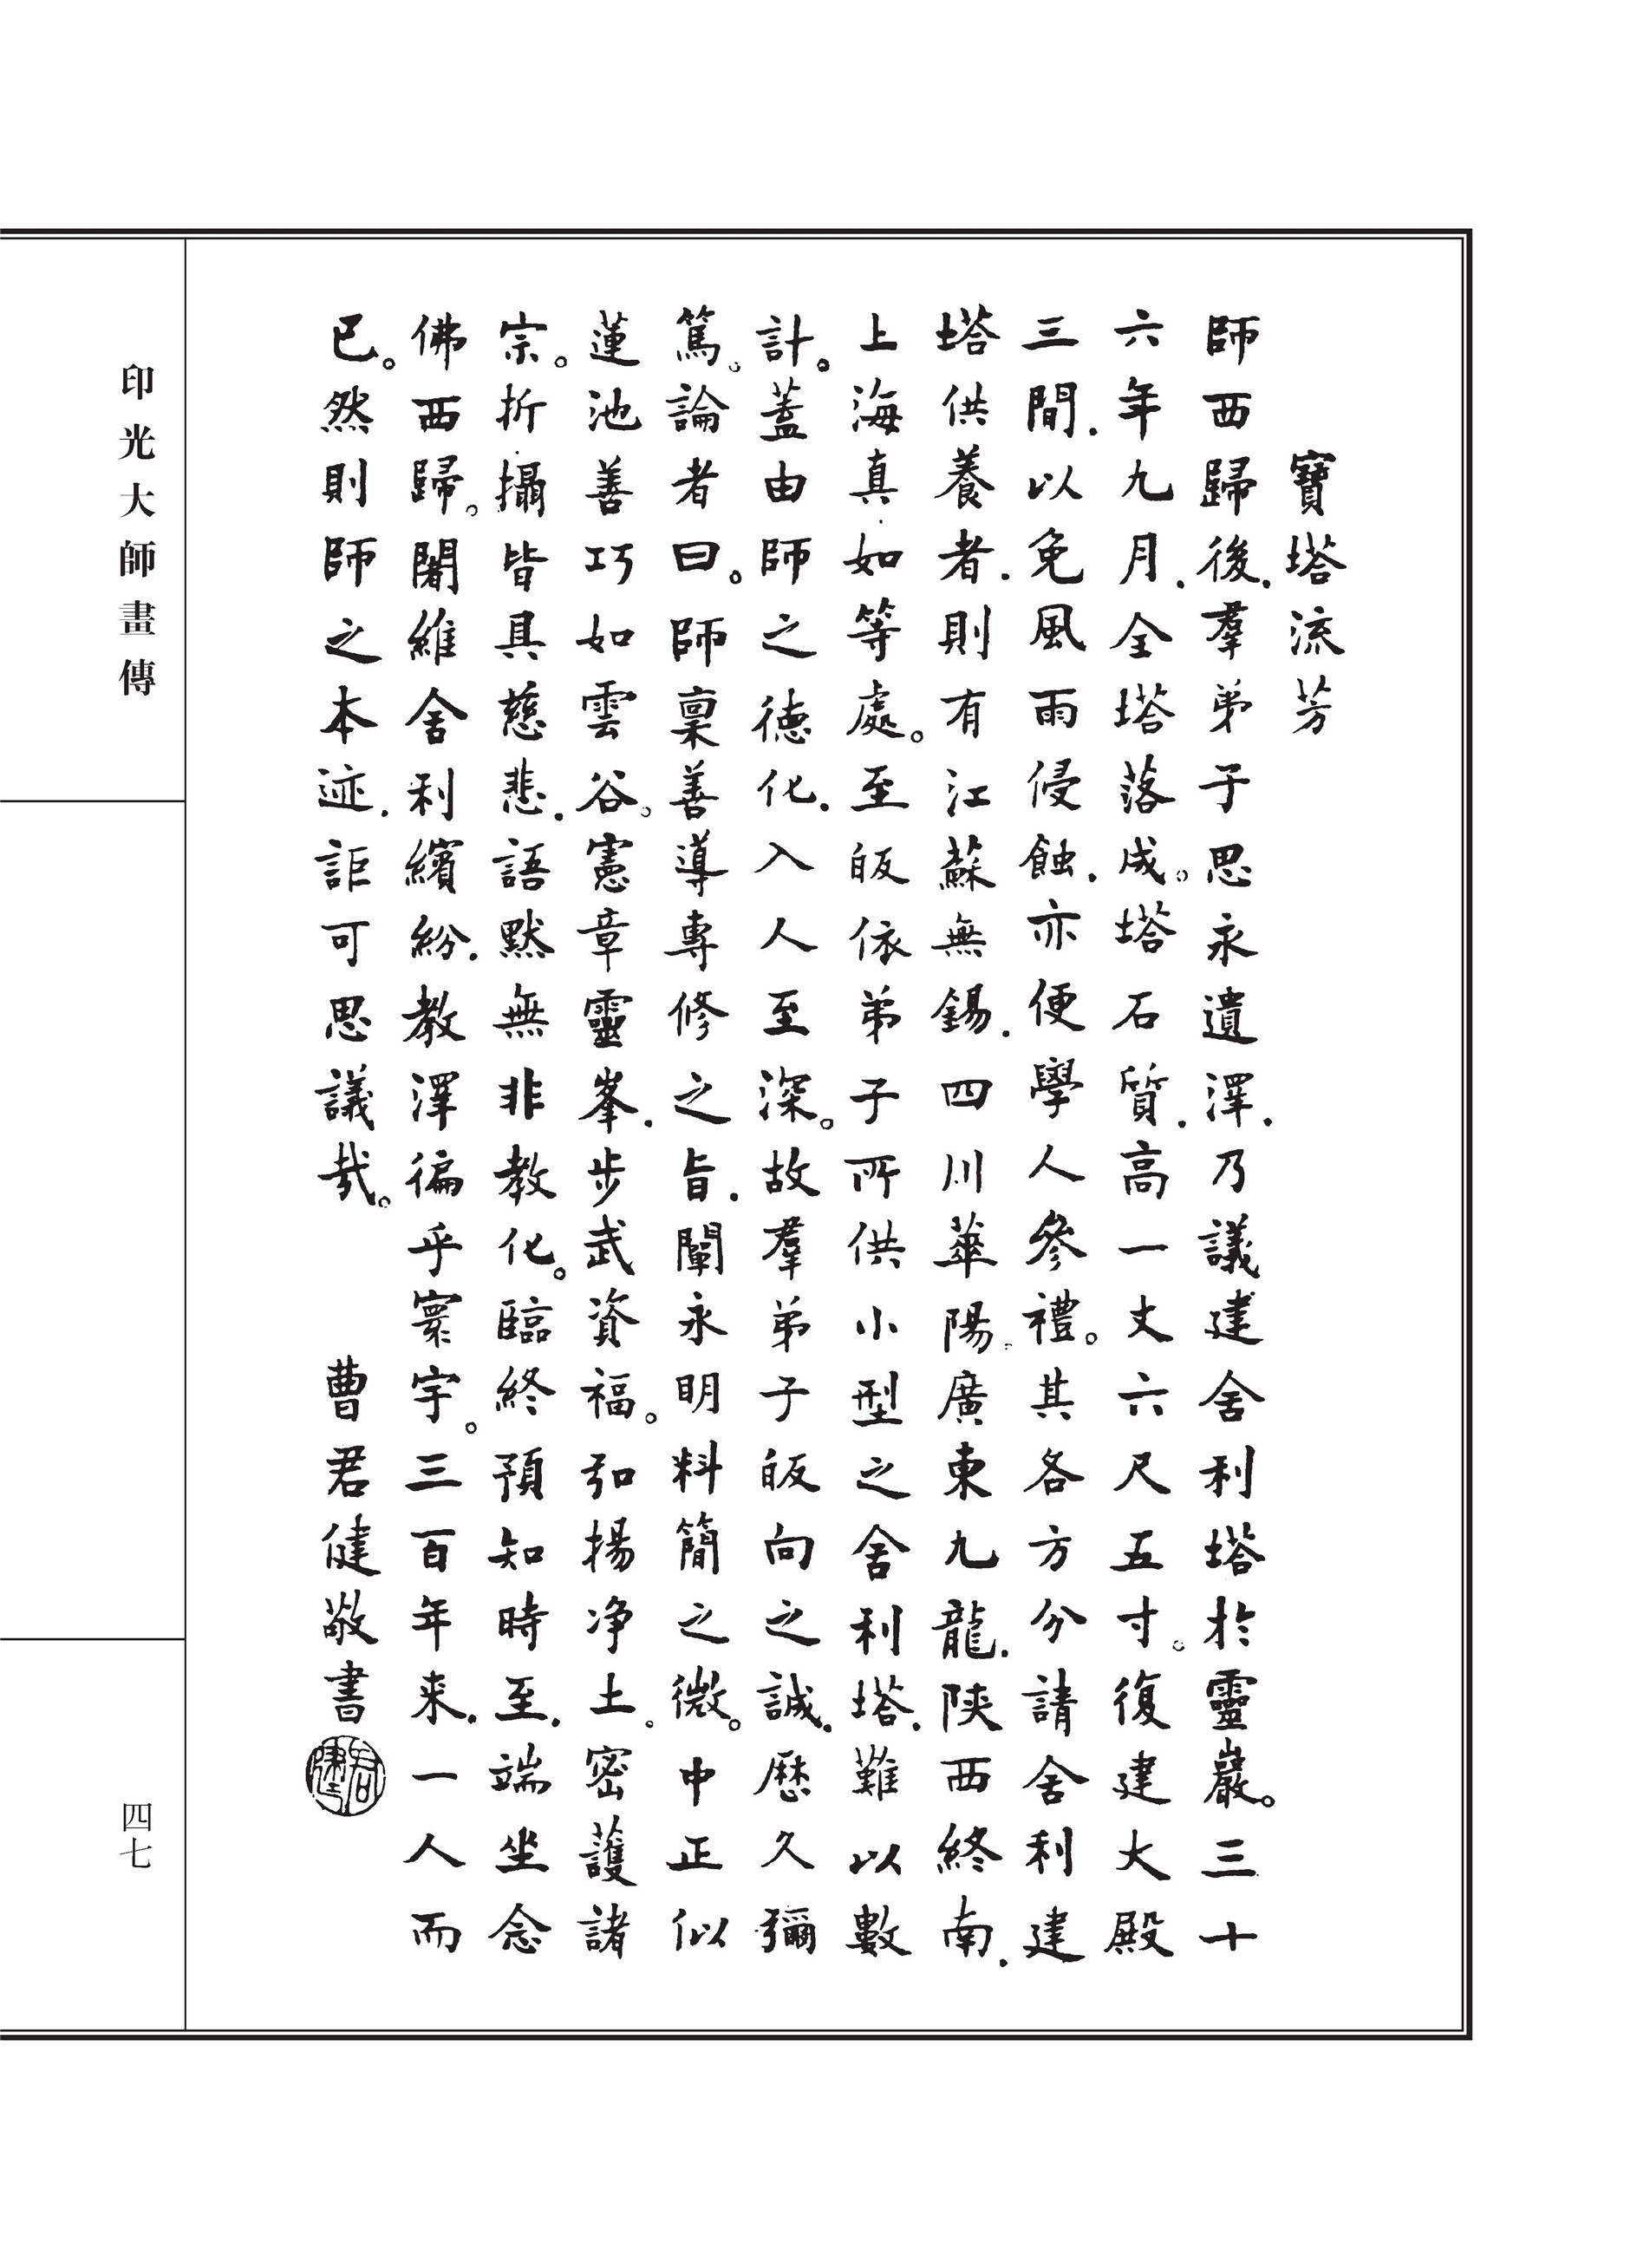 寶塔流芳
師西歸後．羣弟子思永遺澤．乃議建舍利塔於靈巖。三十
六年九月．全塔落成。塔石質．高一丈六尺五寸。復建大殿
三間．以免風雨侵蝕．亦便學人參禮。其各方分請舍利建
塔供養者．則有江蘇無錫．四川華陽．廣東九龍．陝西終南．
上海真如等處。至皈依弟子所供小型之舍利塔．難以數
計。蓋由師之德化．入人至深。故羣弟子皈向之誠．歷久彌
篤。論者曰。師稟善導專修之旨．闡永明料簡之微。中正似
蓮池善巧如雲谷。憲章靈峯．步武資福。弘揚净土。密護諸
宗。折攝皆具慈悲．語默無非教化。臨終預知時至．端坐念
佛西歸。闍維舍利繽紛．教澤徧乎寰宇。三百年来．一人而
已。然則師之本迹．詎可思議哉。　曹君健敬書
君健
印光大師畫傳
四七